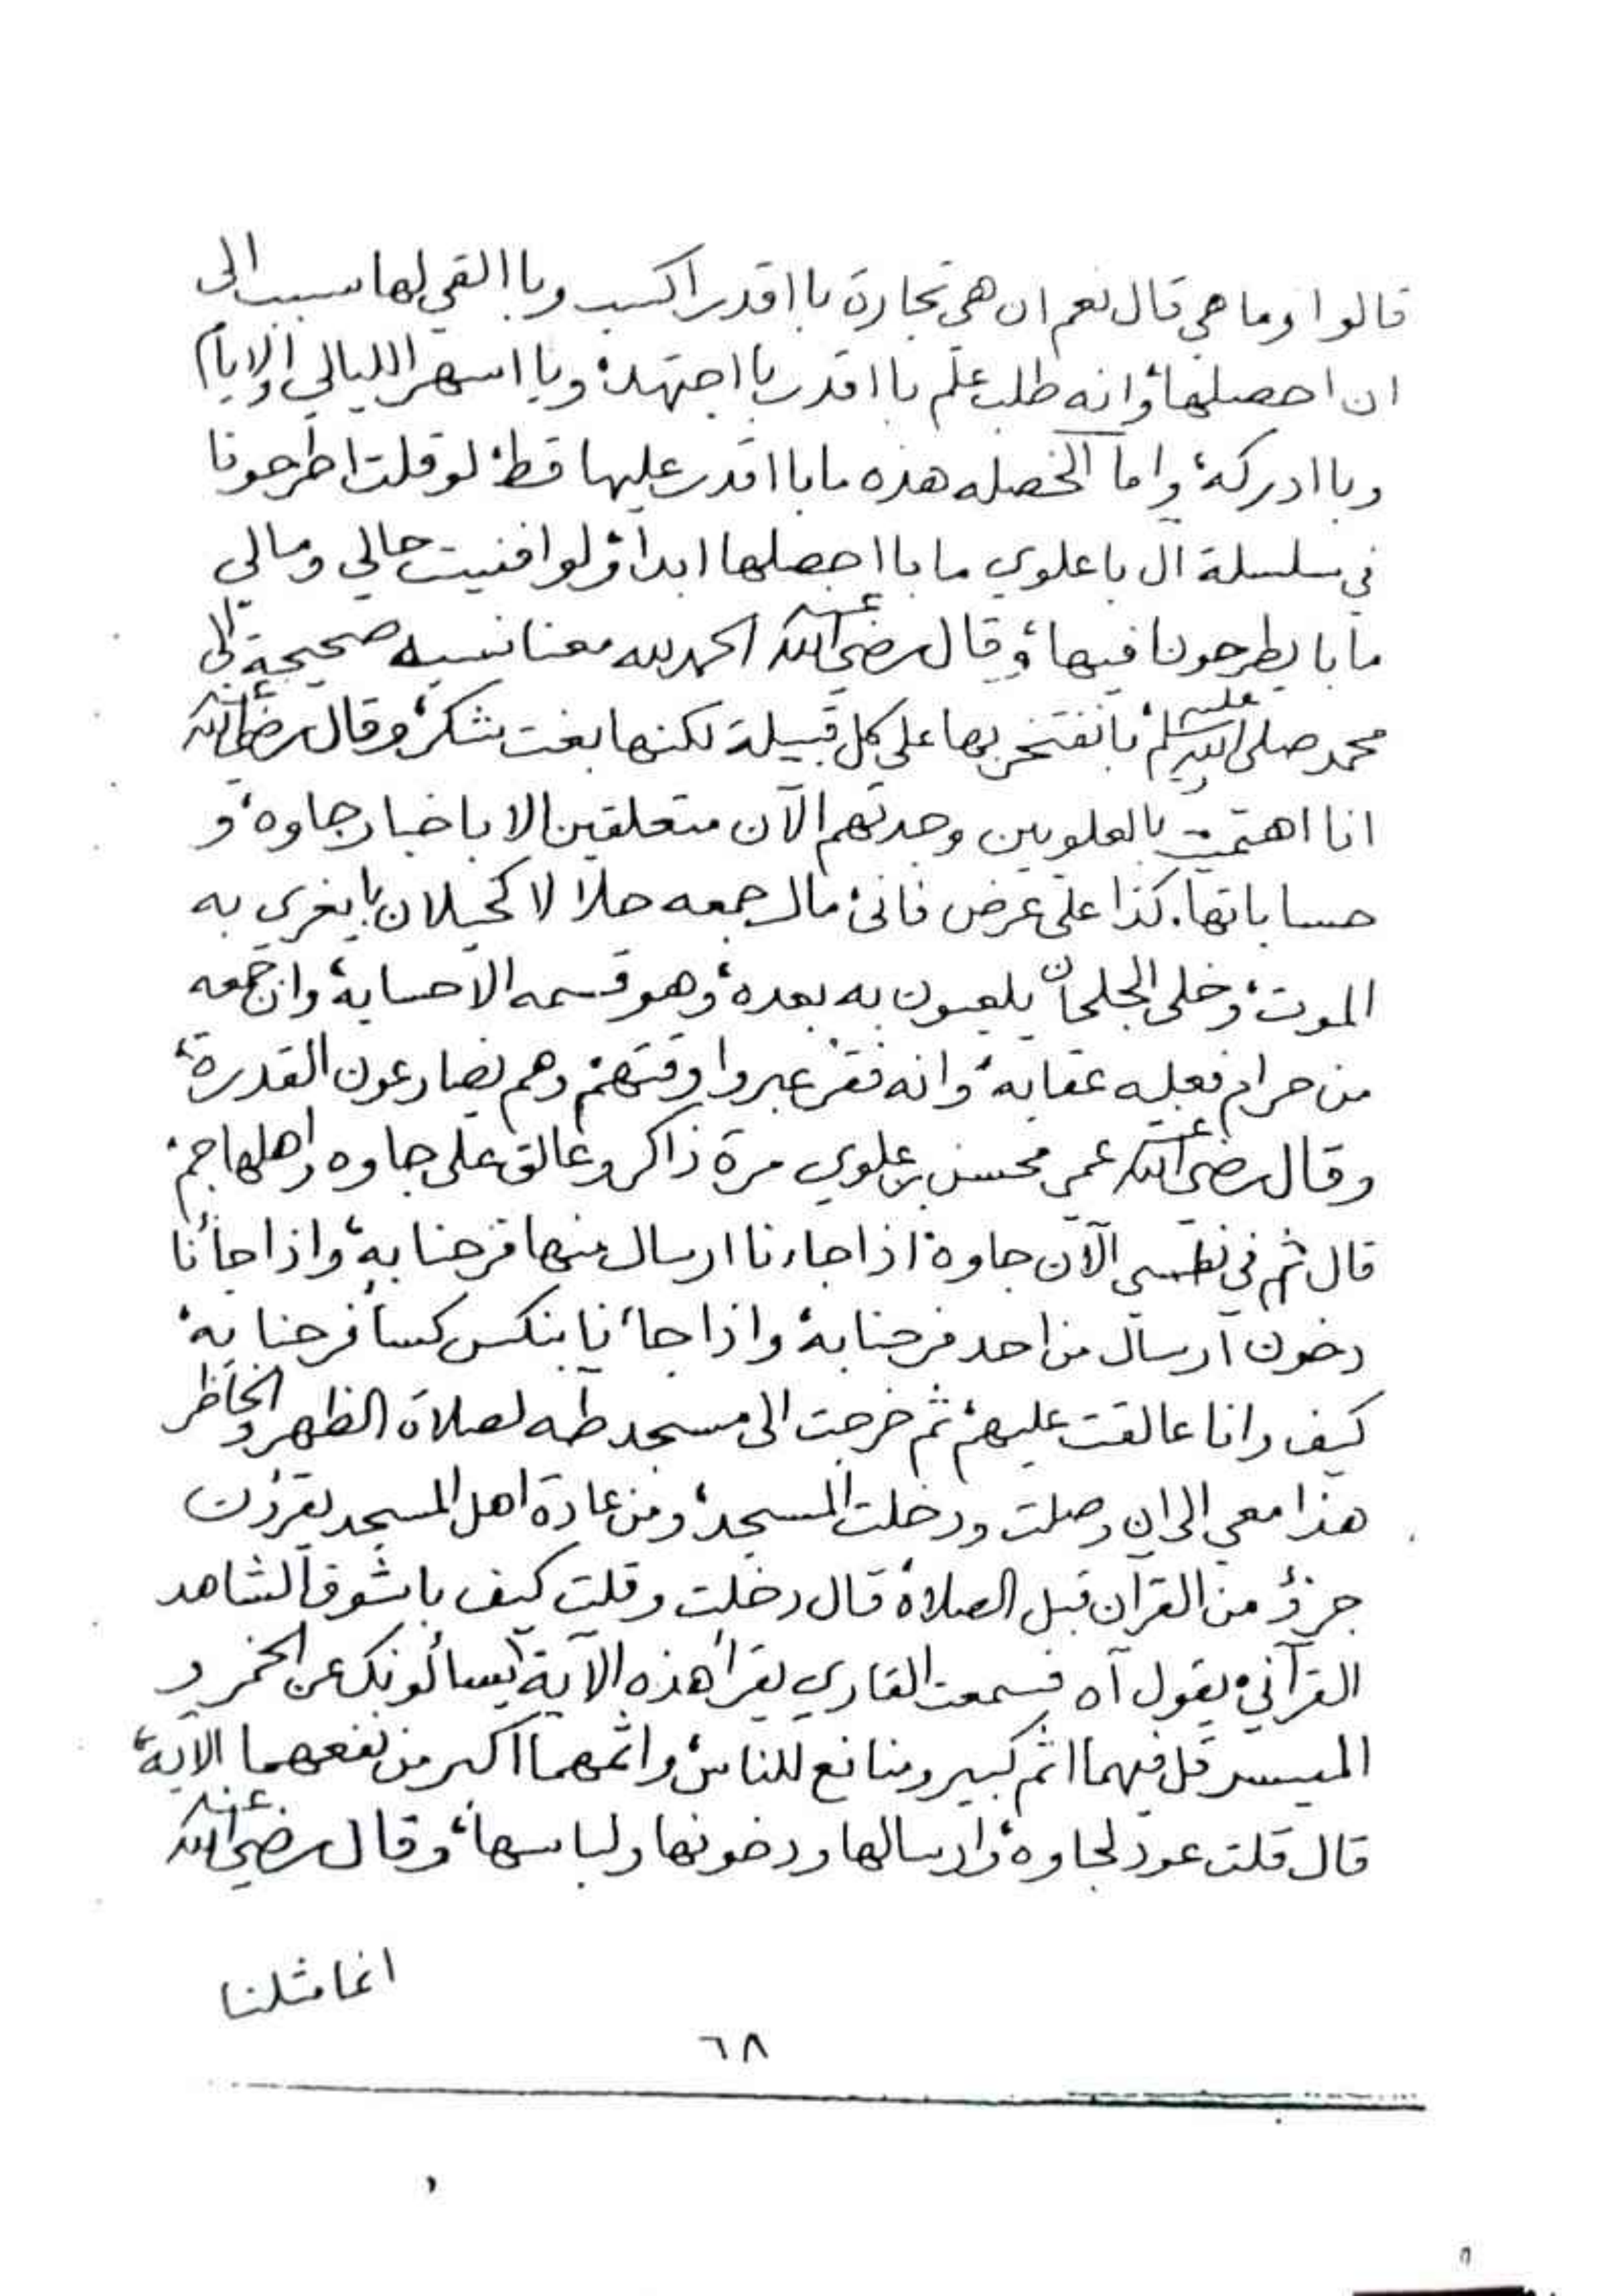 قالوا وما هي قال نعم ان هي تجارة باقدر اكسب وباالقي لها سبب الى
ان احصلها، وانه طلب علم بااقدر بااجتهد، وبااسهر الليالي والايام
وباادركه، واما الخصله هذه ما بااقدر عليها قط، لو قلت اطرحونا
في سلسلة آل باعلوي ما بااحصلها ابدا، ولو افنيت حالي ومالي
ما با يطرحونا فيها، وقال رضي الله عنه الحمد لله معنا نسبه صحيحة الى
محمد صلى الله عليه وسلم، بانفتخر بها على كل قبيلة لكنها بغت شكر، وقال رضي الله عنه
انا اهتميت بالعلويين وجدتهم الآن متعلقين الا باخبار جاوه، و
حساباتها. كذا على عرض فانى، مال جمعه حلالا كحيلان با يغري به
الموت، وخلى الجلحان يلعبون به بعده، وهو قسمه الا حسابه، وان جمعه
من حرام فعليه عقابه، وانه فقر عبروا وقتهم، وهم يصارعون القدرة،
وقال رضي الله عنه عمي محسن بن علوي مرة ذاكر وعالق على جاوه واهلها جم،
قال ثم في نفسي الآن جاوة، اذا جاءنا ارسال منها فرحنا به، واذا جأنا
دخون ارسال من احد فرحنا به، واذا جأنا بنكس كسأ فرحنا به،
كيف وانا عالقت عليهم، ثم خرجت الى مسجد طه لصلاة الظهر والخاطر
هذا معي الى ان وصلت ودخلت المسجد، ومن عادة اهل المسجد يقرؤن
جزؤ من القرآن قبل الصلاة، قال دخلت وقلت كيف باشوف الشاهد
القرآني، يقول آه فسمعت القاري يقرأ هذه الآية، يسألونك عن الخمر و
الميسر قل فيهما اثم كبير ومنافع للناس، واثمهما اكبر من نفعهما الآية،
قال قلت عود لجاوة، وارسالها ودخونها ولباسها، وقال رضي الله عنه
انما مثلنا
٦٨